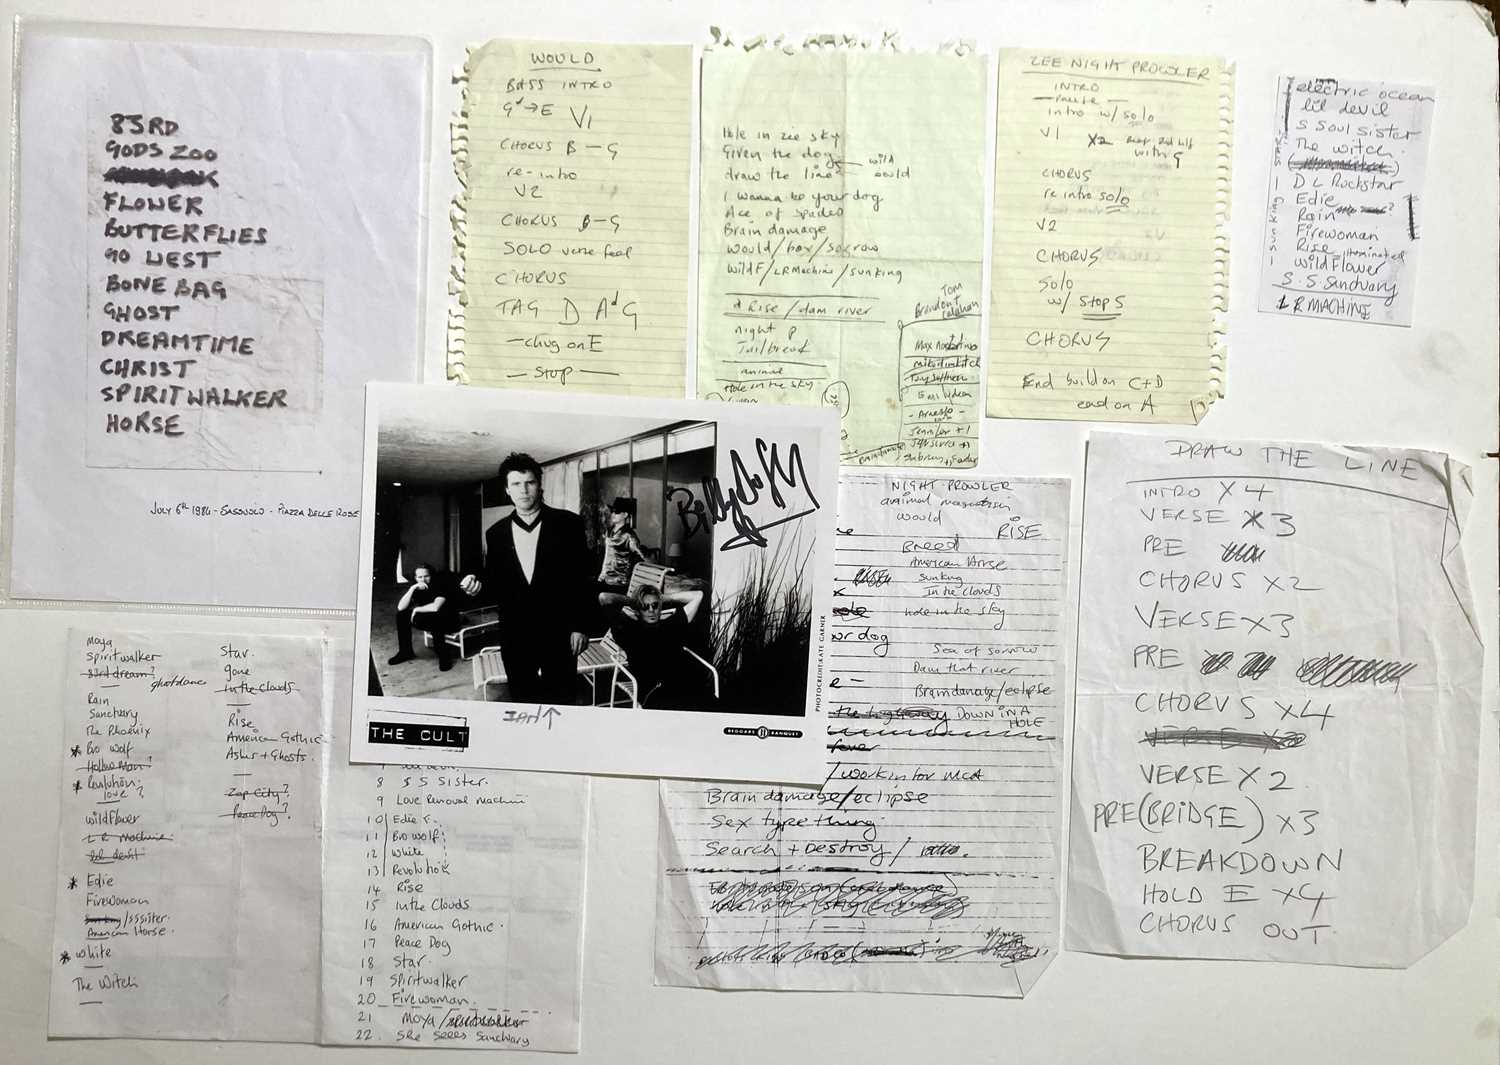 83RD
GODS ZOO
FLOWER
BUTTERFLIES
GO WEST
BONE BAG
GHOST
DREAMTIME
CHRIST
SPIRITWALKER
HORSE
JULY 6th 1984 - SASSUOLO - PIAZZA DELLE ROSE
WOULD
BASS INTRO
G → E V1
CHORUS B - G
re-intro
V2
CHORUS B - G
SOLO verse feel
CHORUS
TAG D A G
- chug on E
- STOP -
Hole in zee sky
Given the dog wild
draw the line could
I wanna be your dog
Ace of spades
Brain damage
Would/box/sorrow
WildF/LRMachine/sunking
Rise/dam river
night p
Jailbreak
animal
Hole in the sky
Tom
Jennifer + 1
ZEE NIGHT PROWLER
INTRO
- PAUSE -
intro w/ solo
V1 X2
with G
CHORUS
re intro solo
V2
CHORUS
Solo
w/ STOPS
CHORUS
End build on C+D
end on A
electric ocean
lil devil
S Soul sister
The witch.
D L Rockstar
Edie
Rain
Firewoman
Rise
WildFlower
S.S. Sanctuary
LR MACHINE
1 sunking 1 STAR
Billy Duffy
IAN ↑
THE CULT
BEGGARS BANQUET
PHOTOCREDIT: KATE GARNER
NIGHT-PROWLER
animal magnetism
would
RISE
Breed
American Horse
sunking
In the clouds
hole in the sky
ur dog
Sea of sorrow
Dam that river
Braindamage/eclipse
DOWN IN A
HOLE
fever
/workin for MCA
Brain damage/eclipse
Sex type thing
Search + Destroy/
DRAW THE LINE
INTRO X 4
VERSE X 3
PRE
CHORUS X2
VERSE X3
PRE
CHORUS X4
VERSE X2
VERSE X2
PRE(BRIDGE) X3
BREAKDOWN
HOLD E X4
CHORUS OUT.
Moya
Spiritwalker
83rd dream?
ghostdance
Rain
Sanctuary
The Phoenix
* Bro wolf
Hollow Man?
* Revolution
love?
wildflower
L R Machine
lil devil
* Edie
Firewoman
/sssister.
American Horse.
* White
The Witch
Star.
gone
In the Clouds
Rise
American Gothic
Ashes + Ghosts.
Zap City?
Peace Dog?
7
8 S S Sister.
9 Love Removal Machine
10 Edie
11 Bro wolf
12 White
13 Revolution
14 Rise
15 In the Clouds
16 American Gothic.
17 Peace Dog
18 Star.
19 Spiritwalker
20 Firewoman.
21 Moya/
22. She Sells Sanctuary